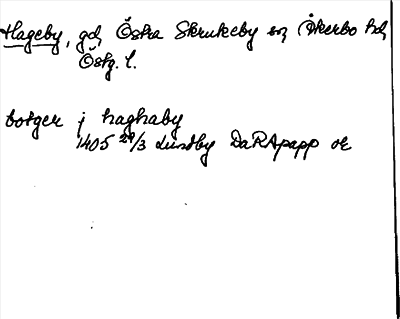 Hageby, gd, Östra Skrukeby sn, Åkerbo hd,
Östg. l.
botger j haghaby
1405 29/3 Lundby DaRApapp or